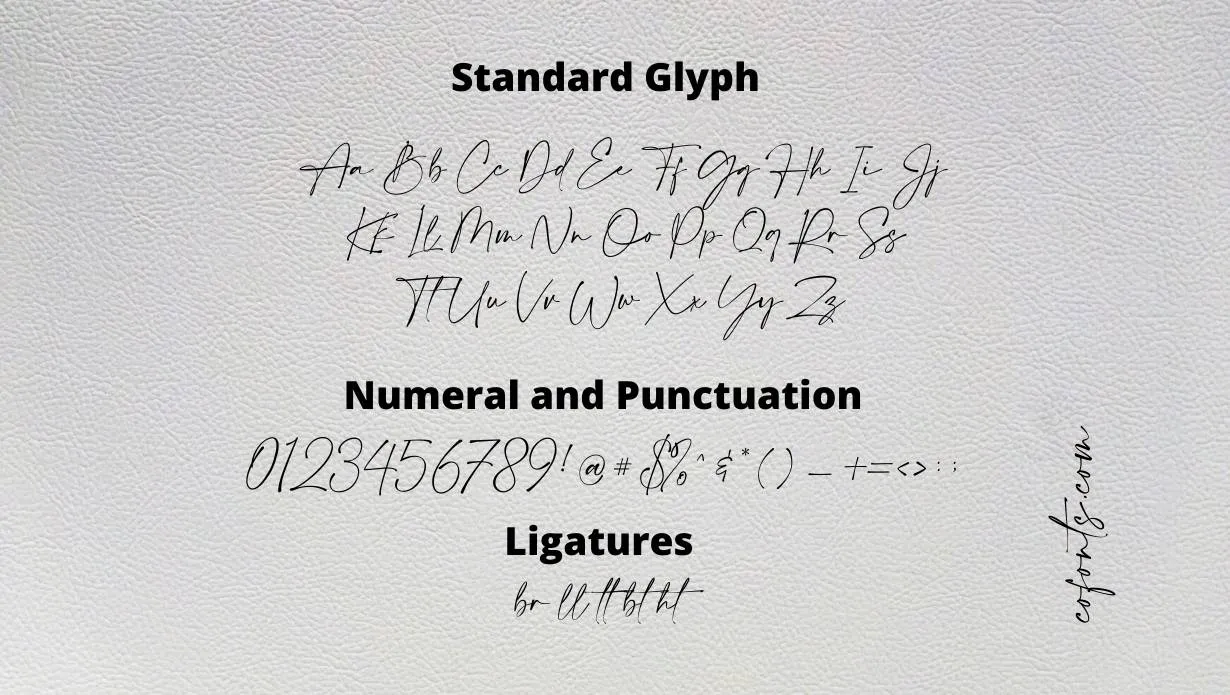 Standard Glyph
Aa Bb Cc Dd Ee Ff Gg Hh Ii Jj
Kk Ll Mm Nn Oo Pp Qq Rr Ss
Tt Uu Vv Ww Xx Yy Zz
Numeral and Punctuation
0123456789! @ # $% ^ & * ( ) _ + = < > : ;
Ligatures
br ll tt bt ht
cofonts.com